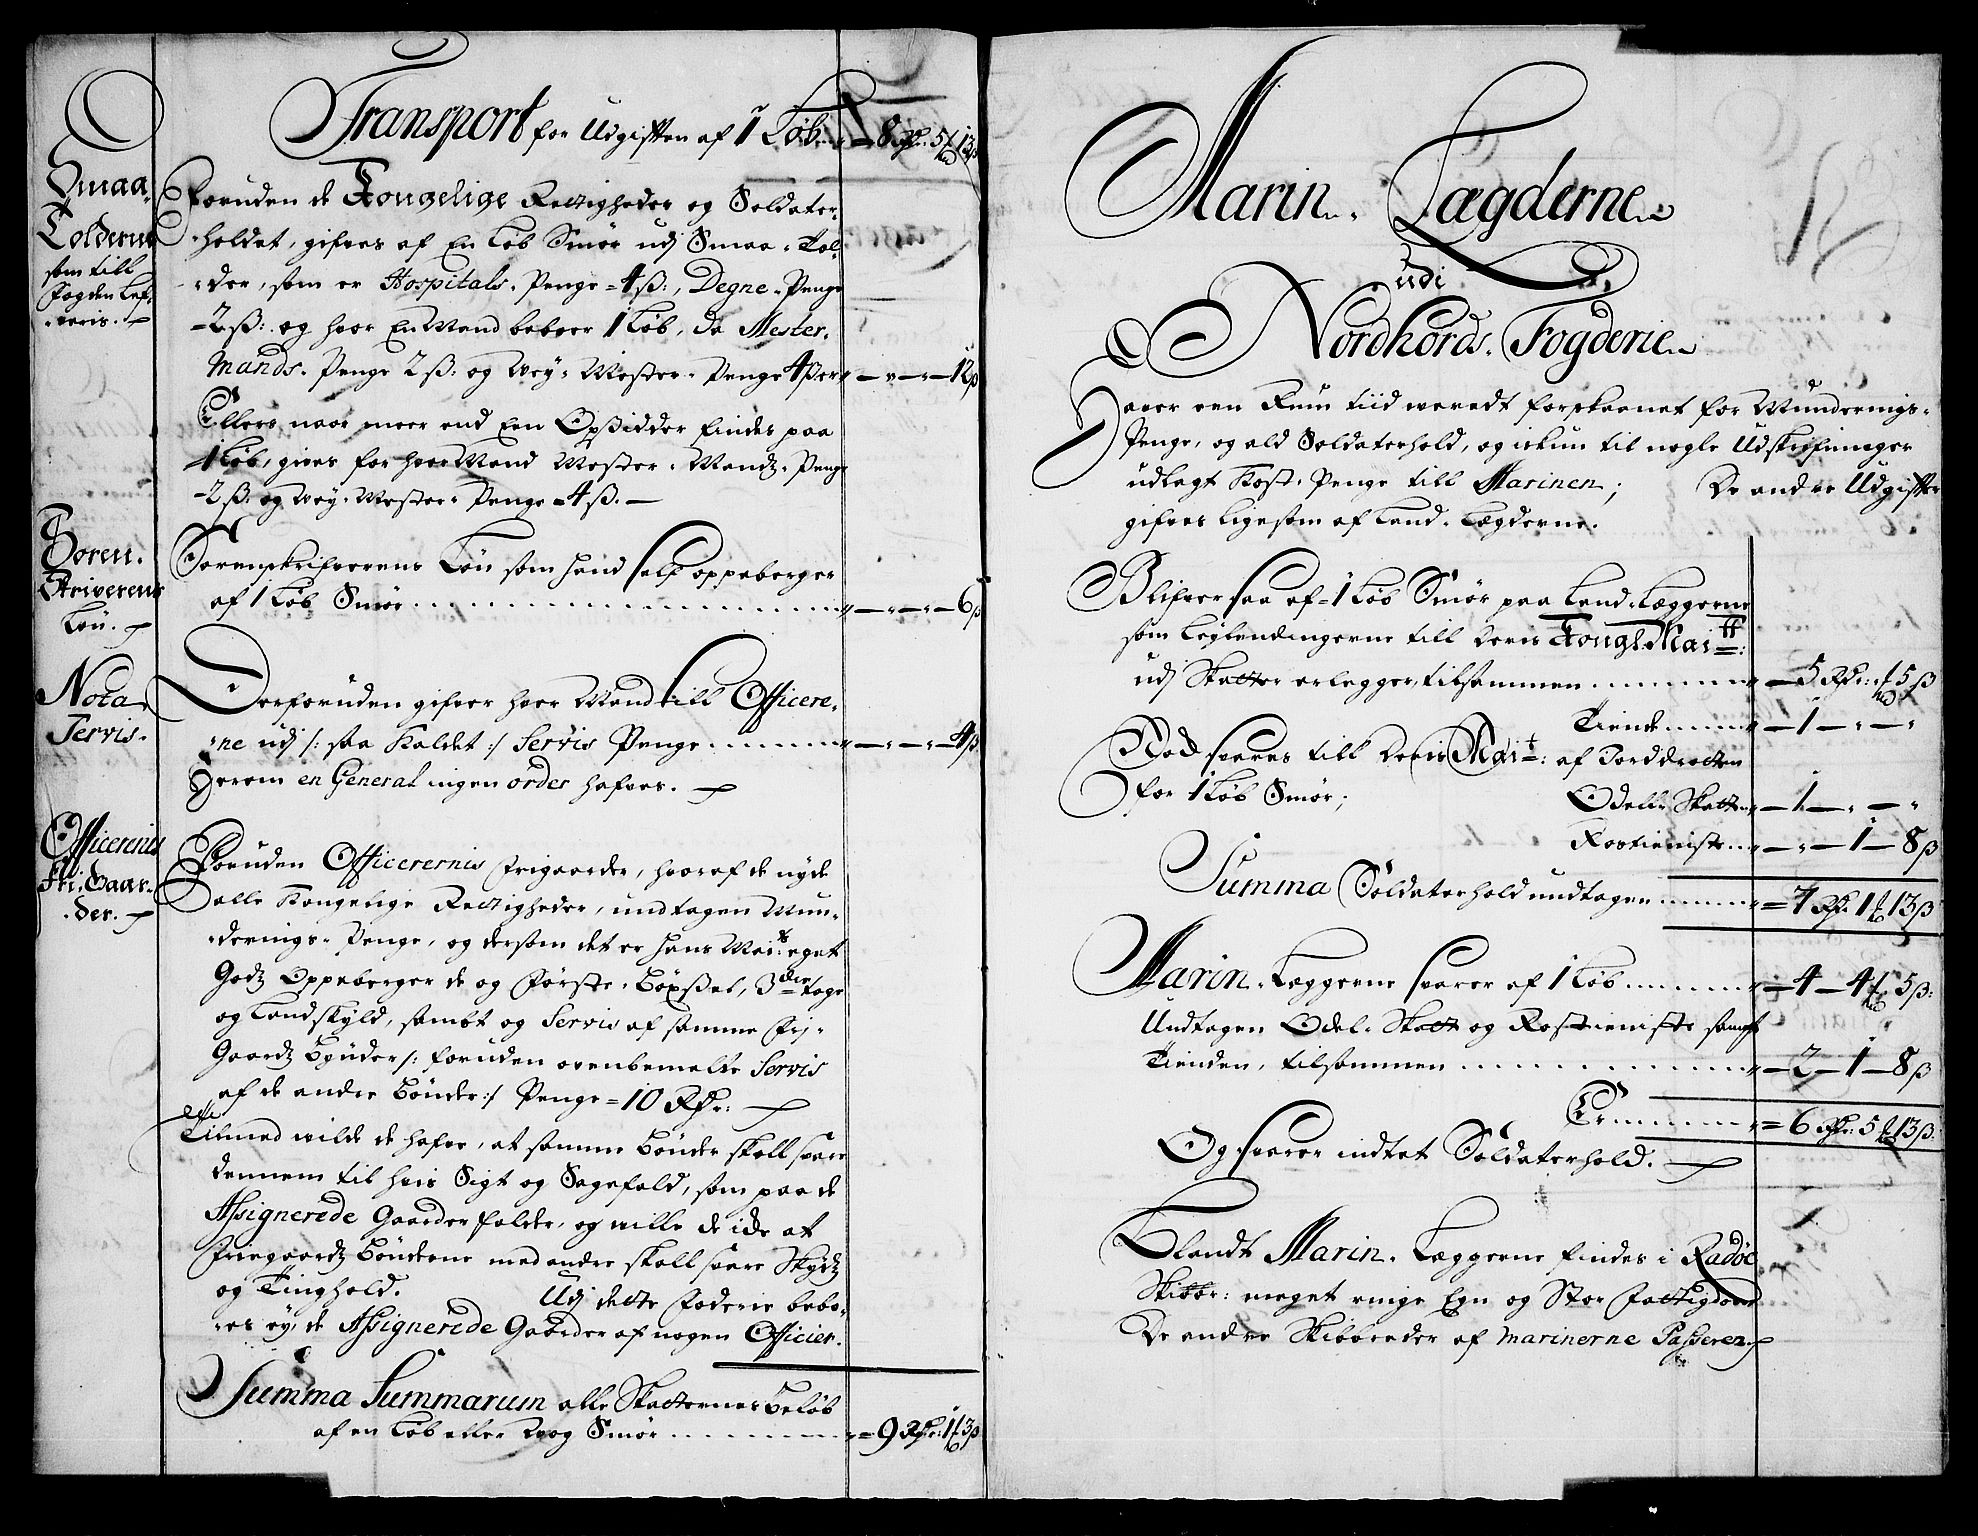 Transport for Udgifften af 1 Løb - 8 Rdr: 5 ℔ 13 ß
Smaa-
Tolderne
som till
Fogden lef-
veris.
Foruden de Kongelige Rettigheder og Soldater-
holdet, gifves af En Løb Smør udj Smaa-Tol-
der, som er Hospitals-Penge - 4 ß:, Degne-Penge
- 2 ß: og hvor En Mand beboer 1 Løb, da Mester-
Mands-Penge 2 ß: og Vey-Mester-Penge 4 ß er - 12 ß
Ellers naar meer end Een Opsidder findes paa
1 Løb, gives for hver Mand Mester-Mandz-Penge
2 ß: og Vey-Mester-Penge - 4 ß.
Soren-
Skriverens
Løn.
Sorenskrifverens Løn som hand self oppeberger
af 1 Løb Smør - 6 ß
Nota
Servis.
Derforuden gifver hver Mand till Officere-
ne udj /: saa Kaldet :/ Servis Penge - 4 ß
Herom en General ingen order hafves.
Officerernis
Fri-Gaar-
der.
Foruden Officerernis frigaarder, hvoraf de nyde
alle Kongelige Rettigheder, undtagen Mun-
derings-Penge, og dersom det er hans Mai:ts eget
Godz Oppeberger de og Første-Bøxsel, 3die tage
og Landskyld, sambt og Servis af samme Frj-
Gaardz Bønder /: foruden ovenbemelte Servis
af de andre Bønder :/ Penge - 10 Rdr:
Tilmed wilde de hafve, at samme Bønder skall svare
dennem til hvis Sigt og Sagefald, som paa de
Assignerede Gaarder falder, og wille de ide at
friegaardz Bønderne med andre skall svare Skydz
og Tinghold. Udj dette foderie bebo-
es ey de Assignerede Gaarder af nogen Officier.
Summa Summarum alle Skatternes Beløb
af en Løb eller Wog Smør - 9 Rdr: 1 ℔ 3 ß
Marin-Lægderne
udi
Nordhords-Fogderie
Haver een Rum tiid weredt forskaanet for Munderings-
Penge, og ald Soldaterhold, og ickun til nogle Udskrifninger
udlagt Kost-Penge till Marinen; De andre Udgiffter
gifves ligesom af Land-Lægderne.
Blifver saa af - 1 Løb Smør paa Land-Læggerne
som Leglendingerne till deris Kongl: Mai:tt:
udj Skatter erlegger, tilsammen - 5 Rdr: ℔ 5 ß
Tiende - 1 - " - "
Nock svares till deris Mai:t: af Jorddrotten
for 1 Løb Smør;
Odells Skatt - 1 - " - "
Rostieniste - " - 1 - 8 ß
Summa Soldaterhold undtagen - 7 Rdr. 1 ℔ 13 ß
Marin-Læggerne svarer af 1 Løb - 4 - 4 ℔ 5 ß:
Undtagen Odel-Skatt og Rostieniste sampt
Tienden, tilsammen - 2 - 1 - 8 ß
Er - 6 Rdr: 5 ℔ 13 ß.
Og svarer indtet Soldaterhold.
Blandt Marin-Læggerne findes i Radøe
Skibbr: meget ringe Egn og Stor fattigdom
De andre Skibbreder af Marinerne Passeren